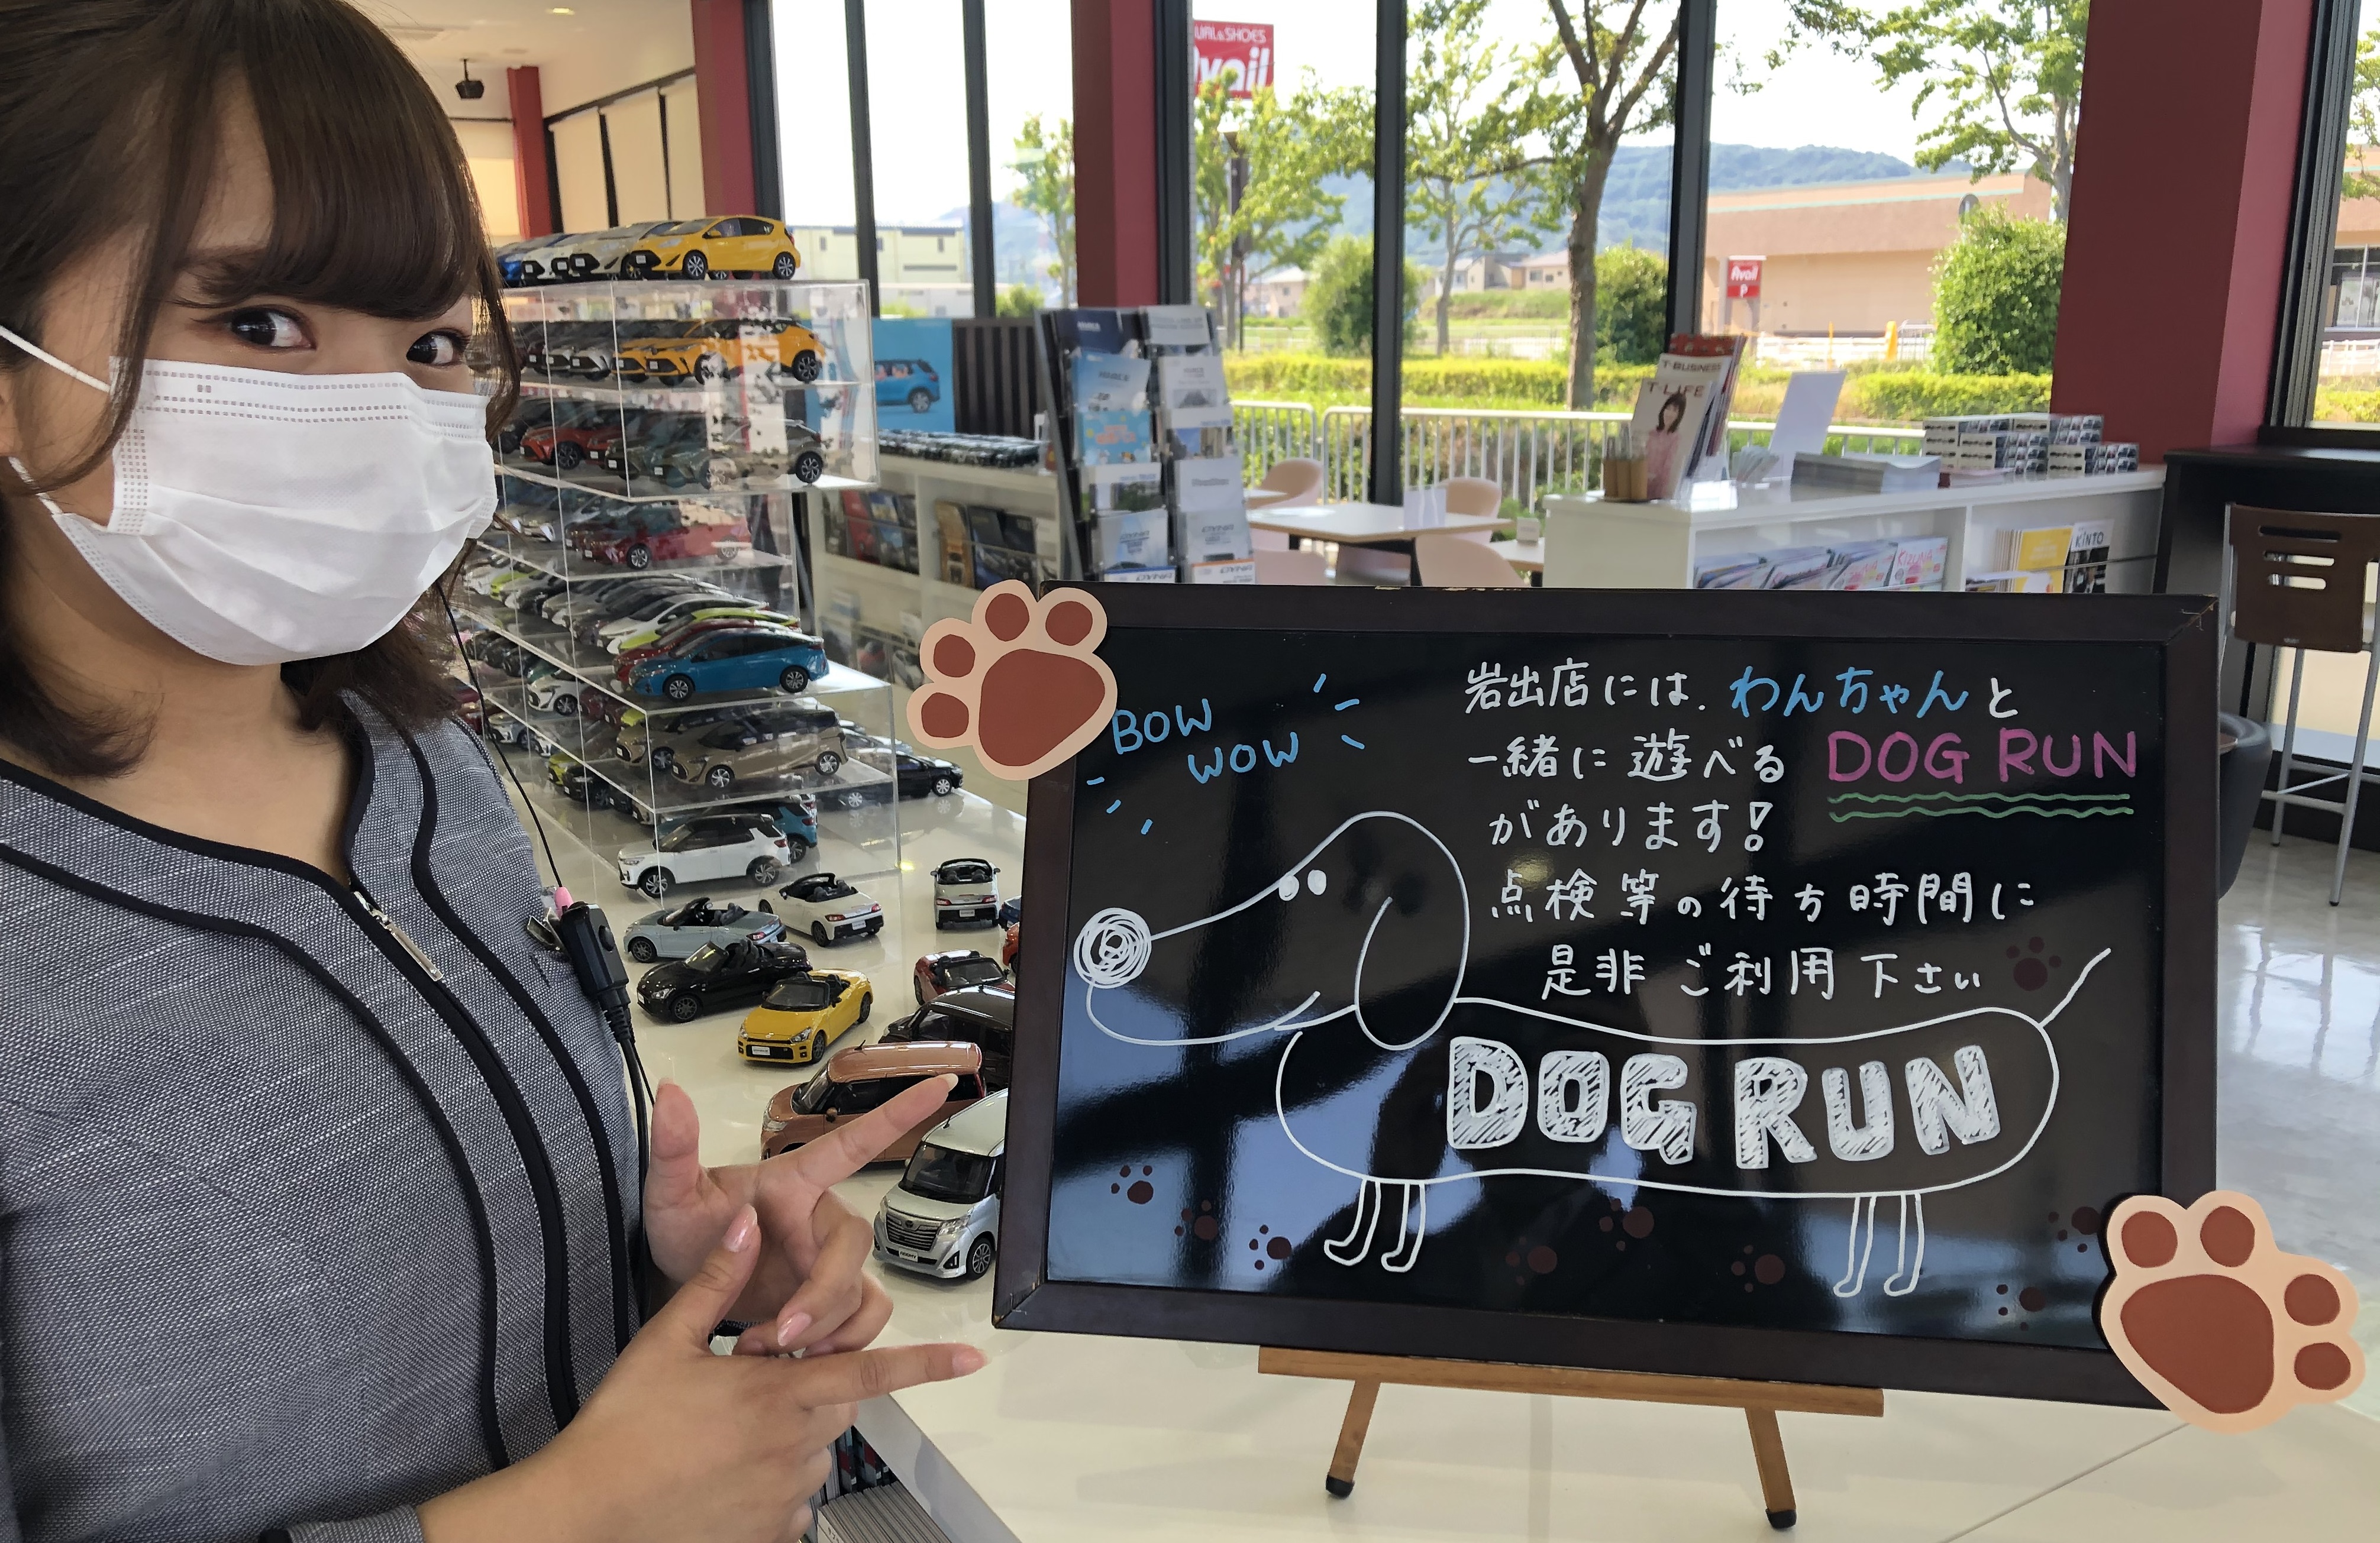 Avail
Avail
P
T-BUSINESS
T-LIFE
KINTO
BOW
WOW
岩出店には、わんちゃんと
一緒に遊べる DOG RUN
があります!
点検等の待ち時間に
是非ご利用下さい
DOG RUN